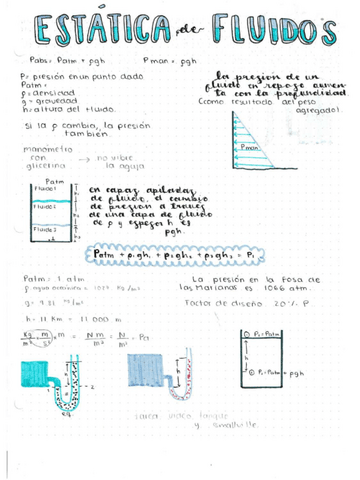 ESTÁTICA de FLUIDOS
Pabs = Patm + ρgh    Pman = ρgh
P = presión en un punto dado
Patm =
ρ = densidad
g = gravedad
h = altura del fluido.
La presión de un
fluido en reposo aumen
ta con la profundidad
(como resultado del peso
agregado)
si la ρ cambia, la presión
también.
Pman
manómetro
con
glicerina → no vibre
la aguja
Patm
Fluido 1
Fluido 2
en capas apiladas
de fluido, el cambio
de presión a través
de una capa de fluido
de ρ y espesor h es
ρgh.
Patm + ρ1gh1 + ρ2gh2 + ρ3gh3 = P1
Patm = 1 atm
La presión en la fosa de
las Marianas es 1066 atm.
g = 9.81 m/s²
Factor de diseño 20% P.
h = 11 Km = 11 000 m
Kg/m³ m/s² m = N m/m³ = N/m² = Pa
h
1
2
h
② P2 = Patm
h
① P1 = Patm + ρgh
tarea: video tanque
y smallville.